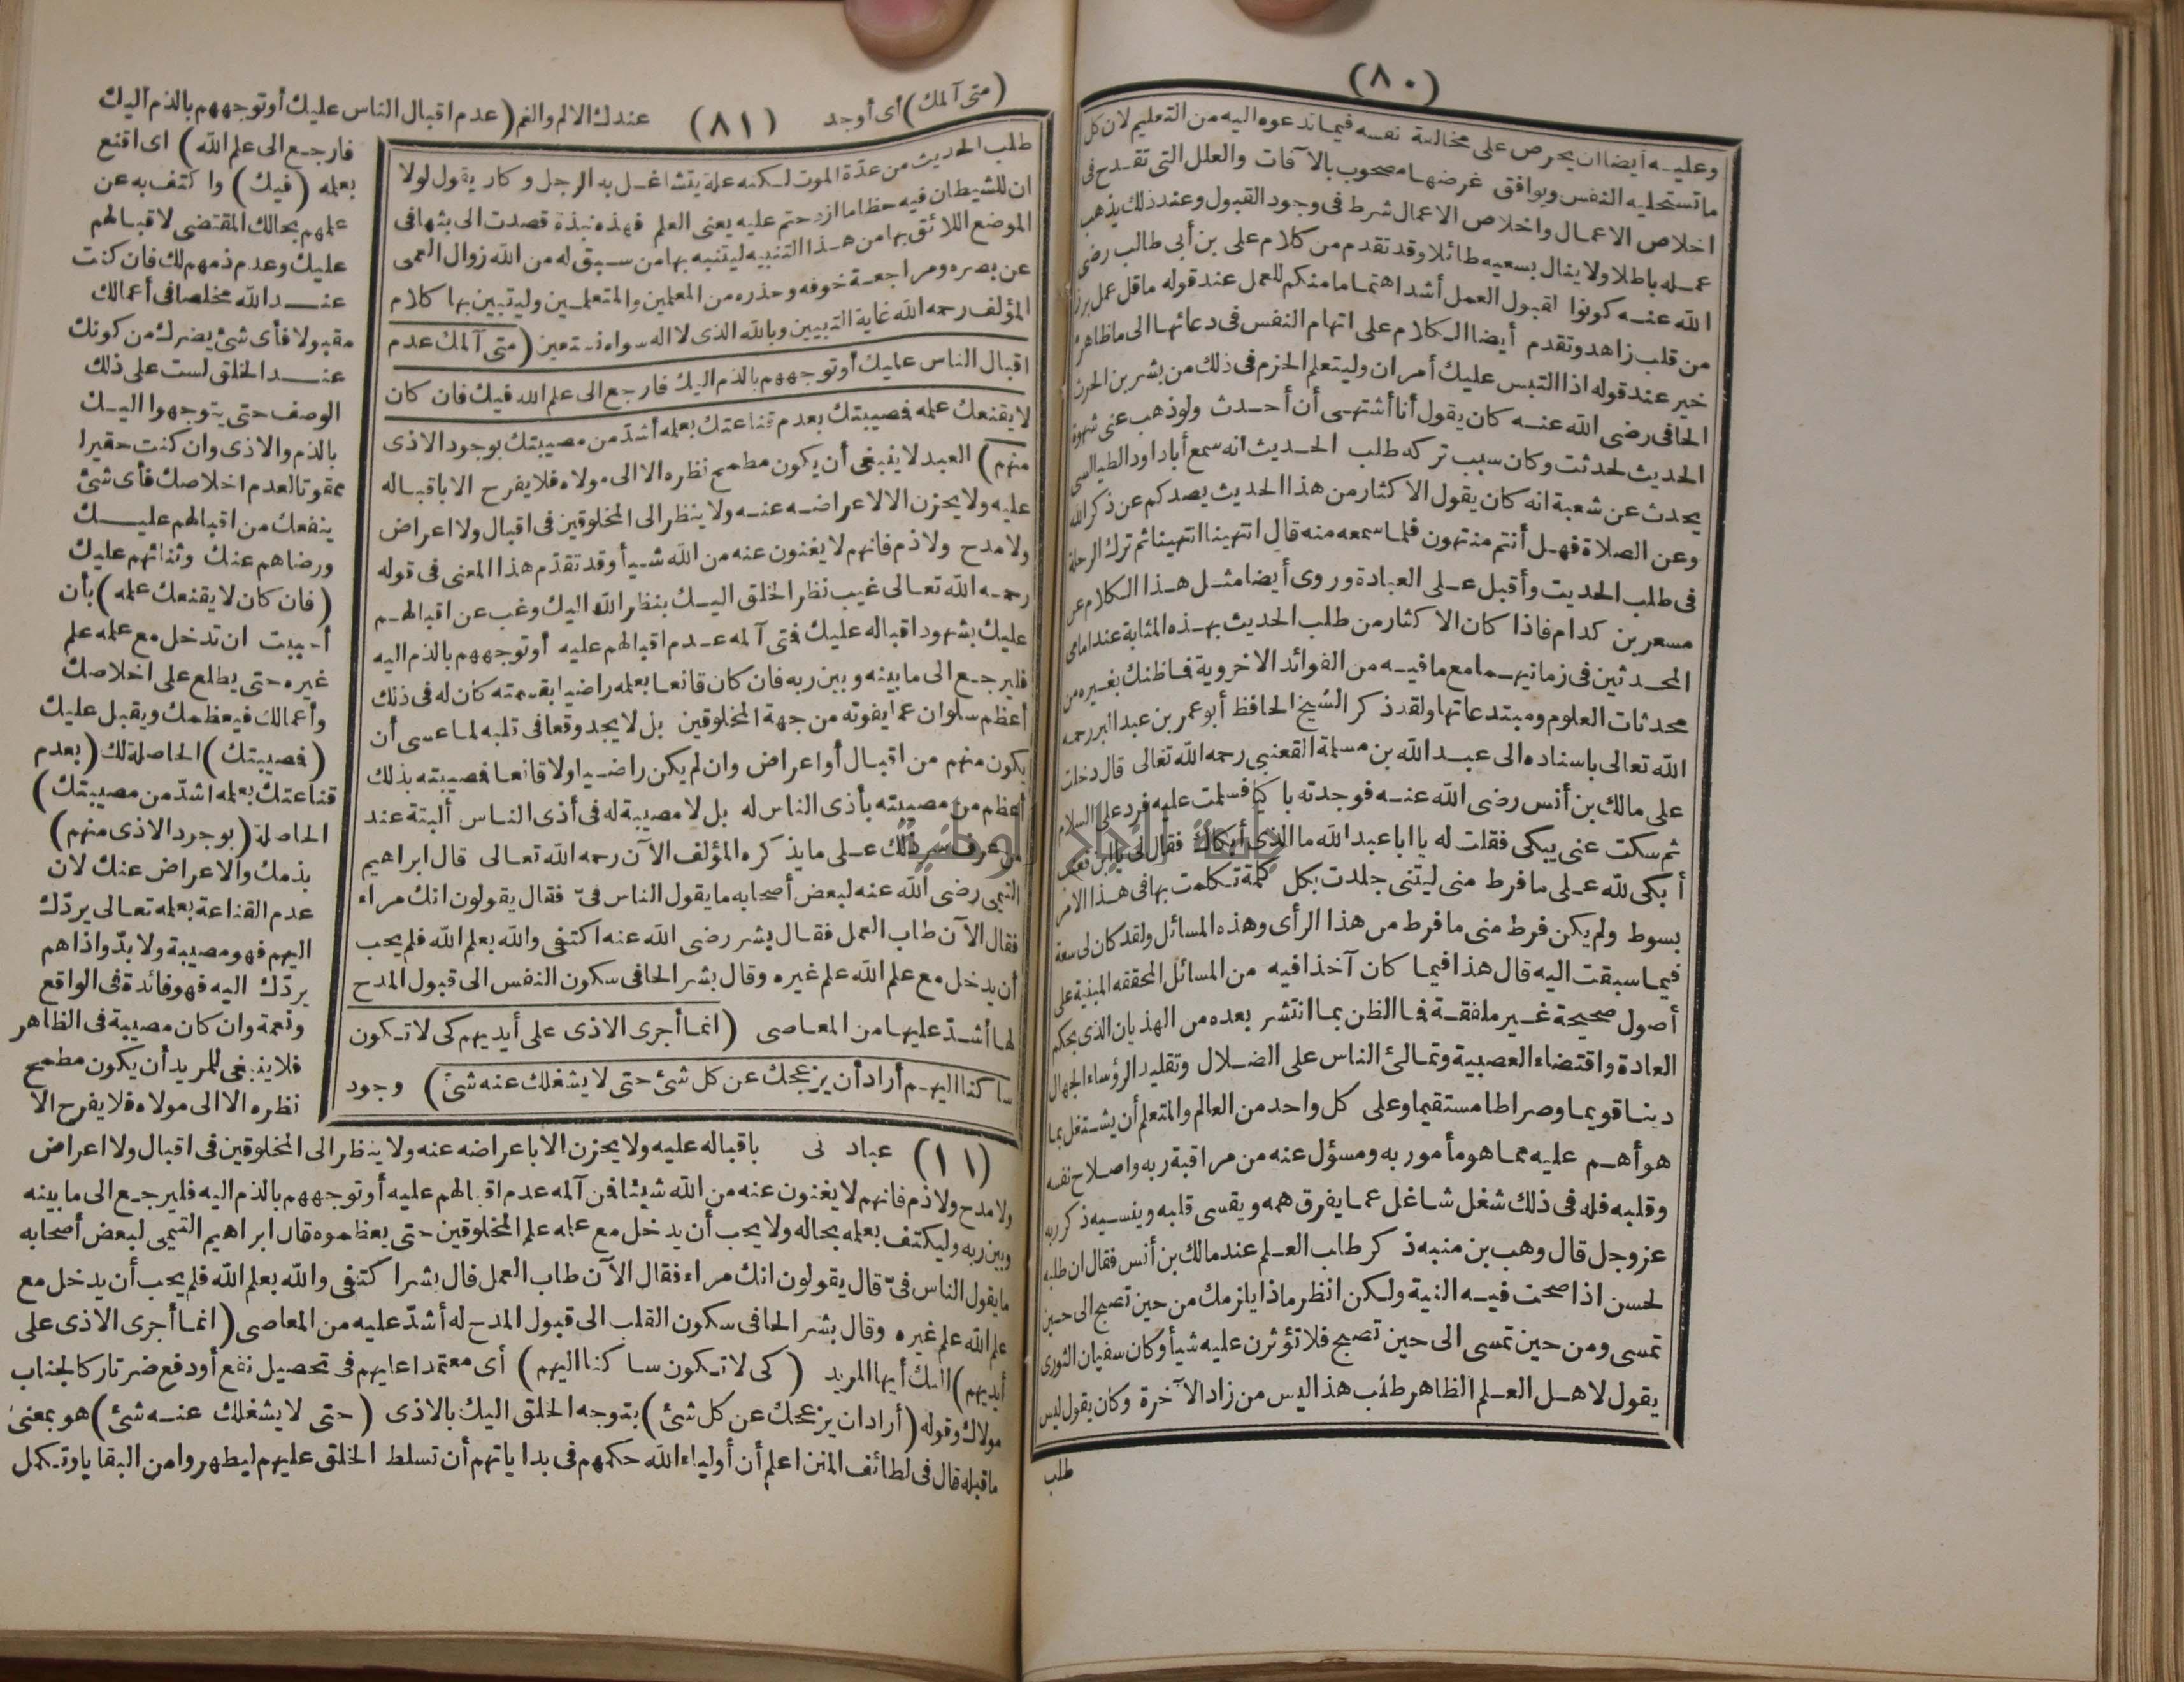 (٨٠)
وعليه أيضا ان يحرص على مخالفة نفسه فيما تدعوه اليه من التعليم لان كل
ما تستحليه النفس ويوافق غرضها مصحوب بالآفات والعلل التى تقدح فى
اخلاص الاعمال واخلاص الاعمال شرط فى وجود القبول وعند ذلك يذهب
عمله باطلا ولا ينال بسعيه طائلا وقد تقدم من كلام على بن أبى طالب رضى
الله عنه كونوا لقبول العمل أشد اهتماما منكم للعمل عند قوله ما قل عمل برز
من قلب زاهد وتقدم أيضا الكلام على اتهام النفس فى دعائها الى ما ظاهره
خير عند قوله اذا التبس عليك أمران وليتعلم الحزم فى ذلك من بشر بن الحرث
الحافى رضى الله عنه كان يقول أنا أشتهى أن أحدث ولو ذهب عنى شهوة
الحديث لحدثت وكان سبب تركه طلب الحديث انه سمع أبا داود الطيالسى
يحدث عن شعبة انه كان يقول الاكثار من هذا الحديث يصدكم عن ذكر الله
وعن الصلاة فهل أنتم منتهون فلما سمعه منه قال انتهينا انتهينا ثم ترك الرحلة
فى طلب الحديث وأقبل على العبادة وروى أيضا مثل هذا الكلام عن
مسعر بن كدام فاذا كان الاكثار من طلب الحديث بهذه المثابة عند امامى
المحدثين فى زمانيهما مع ما فيه من الفوائد الاخروية فما ظنك بغيره من
محدثات العلوم ومبتدعاتها ولقد ذكر الشيخ الحافظ أبو عمر بن عبد البر رحمه
الله تعالى باسناده الى عبد الله بن مسلمة القعنبى رحمه الله تعالى قال دخلت
على مالك بن أنس رضى الله عنه فوجدته باكيا فسلمت عليه فرد على السلام
ثم سكت عنى يبكى فقلت له يا ابا عبد الله ما الذى أبكاك فقال لى يا ابن قعنب
أبكى لله على ما فرط منى ليتنى جلدت بكل كلمة تكلمت بها فى هذا الامر
بسوط ولم يكن فرط منى ما فرط من هذا الرأى وهذه المسائل ولقد كان لى سعة
فيما سبقت اليه قال هذا فيما كان آخذا فيه من المسائل المحققه المبنية على
أصول صحيحة غير ملفقة فما الظن بما انتشر بعده من الهذيان الذى يحكم
العادة واقتضاء العصبية وتمالئ الناس على الضلال وتقليد الرؤساء الجهال
دينا قويما وصراطا مستقيما وعلى كل واحد من العالم والمتعلم أن يشتغل بما
هو أهم عليه مما هو مأمور به ومسؤل عنه من مراقبة ربه واصلاح نفسه
وقلبه فله فى ذلك شغل شاغل عما يفرق همه ويقسى قلبه وينسيه ذكر ربه
عز وجل قال وهب بن منبه ذكر طاب العلم عند مالك بن أنس فقال ان طلبه
لحسن اذا صحت فيه النية ولكن انظر ماذا يلزمك من حين تصبح الى حين
تمسى ومن حين تمسى الى حين تصبح فلا تؤثرن عليه شيأ وكان سفيان الثورى
يقول لاهل العلم الظاهر طلب هذا ليس من زاد الآخرة وكان يقول ليس
طلب
(متى آلمك) أى أوجد (٨١) عندك الالم والغم (عدم اقبال الناس عليك أو توجههم بالذم اليك
طلب الحديث من عدة الموت لكنه علة يتشاغل به الرجل وكان يقول لولا
ان للشيطان فيه حظا ما ازدحتم عليه يعنى العلم فهذه نبذة قصدت الى بثها فى
الموضع اللائق بها من هذا التنبيه ليتنبه بها من سبق له من الله زوال العمى
عن بصره ومراجعة خوفه وحذره من المعلمين والمتعلمين وليتبين بها كلام
المؤلف رحمه الله غاية التبيين وبالله الذى لا اله سواه نستعين (متى آلمك عدم
اقبال الناس عليك أو توجههم بالذم اليك فارجع الى علم الله فيك فان كان
لا يقنعك علمه فصيبتك بعدم قناعتك بعلمه أشدّ من مصيبتك بوجود الاذى
منهم) العبد لا ينبغى أن يكون مطمح نظره الا الى مولاه فلا يفرح الا باقباله
عليه ولا يحزن الا لاعراضه عنه ولا ينظر الى المخلوقين فى اقبال ولا اعراض
ولا مدح ولا ذم فانهم لا يغنون عنه من الله شيأ وقد تقدّم هذا المعنى فى قوله
رحمه الله تعالى غيب نظر الخلق اليك بنظر الله اليك وغب عن اقبالهم
عليك بشهود اقباله عليك فمتى آلمه عدم اقبالهم عليه أو توجههم بالذم اليه
فليرجع الى ما بينه وبين ربه فان كان قانعا بعلمه راضيا بقسمته كان له فى ذلك
أعظم سلوان عما يفوته من جهة المخلوقين بل لا يجد وقعا فى قلبه لما عسى أن
يكون منهم من اقبال أو اعراض وان لم يكن راضيا ولا قانعا فصيبته بذلك
أعظم من مصيبته بأذى الناس له بل لا مصيبة له فى أذى الناس ألبتة عند
من عرف سر ذلك على ما يذكره المؤلف الآن رحمه الله تعالى قال ابراهيم
التيمى رضى الله عنه لبعض أصحابه ما يقول الناس فىّ فقال يقولون انك مراء
فقال الآن طاب العمل فقال بشر رضى الله عنه اكتفى والله بعلم الله فلم يحب
أن يدخل مع علم الله علم غيره وقال بشر الحافى سكون النفس الى قبول المدح
لها أشدّ عليها من المعاصى (انما أجرى الاذى على أيديهم كى لا تكون
ساكنا اليهم أراد أن يزعجك عن كل شئ حتى لا يشغلك عنه شئ) وجود
فارجع الى علم الله) اى اقنع
بعلمه (فيك) واكتف به عن
علمهم بحالك المقتضى لاقبالهم
عليك وعدم ذمهم لك فان كنت
عند الله مخلصا فى أعمالك
مقبولا فأى شئ يضرك من كونك
عند الخلق لست على ذلك
الوصف حتى يتوجهوا اليك
بالذم والاذى وان كنت حقيرا
ممقوتا لعدم اخلاصك فأى شئ
ينفعك من اقبالهم عليك
ورضاهم عنك وثنائهم عليك
(فان كان لا يقنعك علمه) بأن
أحببت ان تدخل مع علمه علم
غيره حتى يطلع على اخلاصك
وأعمالك فيعظمك ويقبل عليك
(فصيبتك) الحاصلة لك (بعدم
قناعتك بعلمه اشدّ من مصيبتك)
الحاصلة (بوجود الاذى منهم)
بذمك والاعراض عنك لان
عدم القناعة بعلمه تعالى يردّك
اليهم فهو مصيبة ولا بدّ واذاهم
يردّك اليه فهو فائدة فى الواقع
ونعمة وان كان مصيبة فى الظاهر
فلا ينبغى للمريد أن يكون مطمح
نظره الا الى مولاه فلا يفرح الا
(١١) عباد نى باقباله عليه ولا يحزن الا باعراضه عنه ولا ينظر الى المخلوقين فى اقبال ولا اعراض
ولا مدح ولا ذم فانهم لا يغنون عنه من الله شيئا فن آلمه عدم اقبالهم عليه أو توجههم بالذم اليه فليرجع الى ما بينه
وبين ربه وليكتف بعلمه بحاله ولا يحب أن يدخل مع علمه علم المخلوقين حتى يعظموه قال ابراهيم التيمى لبعض أصحابه
ما يقول الناس فىّ قال يقولون انك مراء فقال الآن طاب العمل قال بشر اكتفى والله بعلم الله فلم يحب أن يدخل مع
علم الله علم غيره وقال بشر الحافى سكون القلب الى قبول المدح له أشدّ عليه من المعاصى (انما أجرى الاذى على
أيديهم) اليك أيها المريد (كى لا تكون ساكنا اليهم) أى معتمدا عليهم فى تحصيل نفع أو دفع ضر تاركا لجناب
مولاك وقوله (أراد ان يزعجك عن كل شئ) بتوجه الخلق اليك بالاذى (حتى لا يشغلك عنه شئ) هو بمعنى
ما قبله قال فى لطائف المنن اعلم أن أولياء الله حكمهم فى بداياتهم أن تسلط الخلق عليهم ليطهروا من البقايا وتكمل